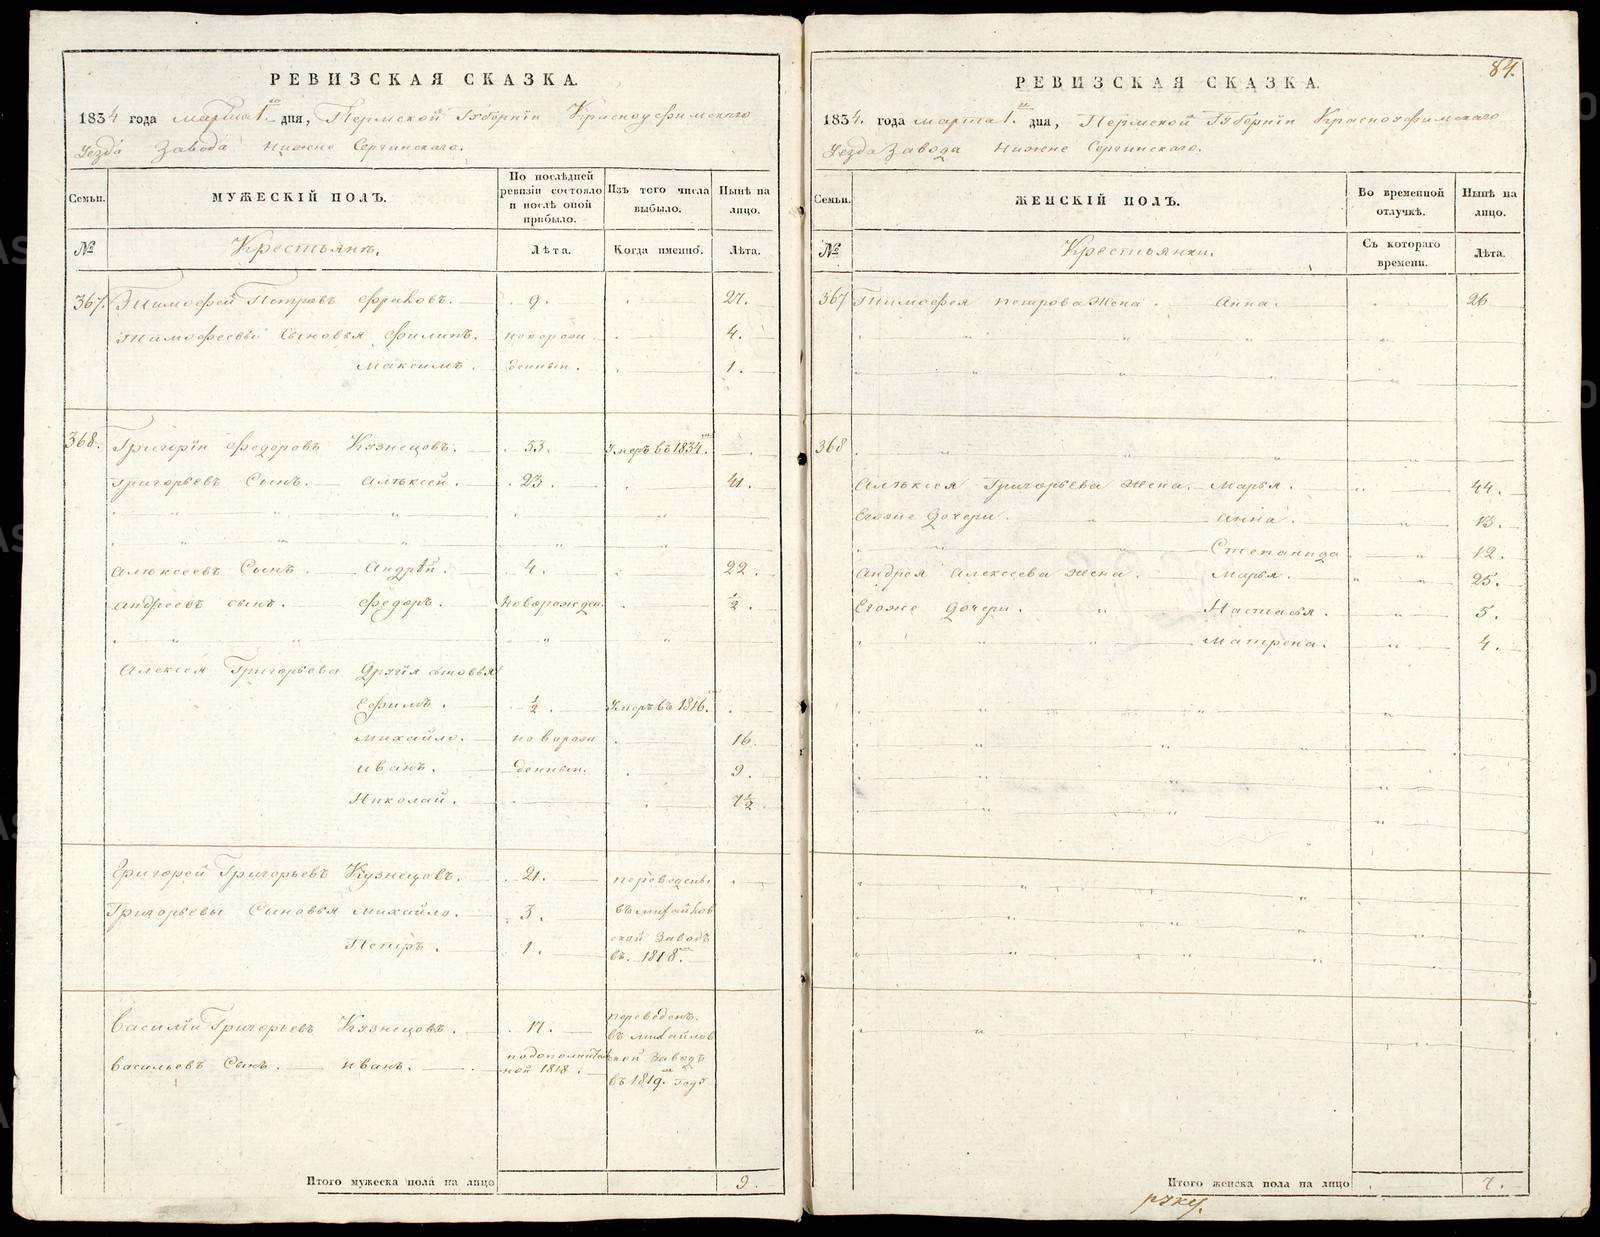 РЕВИЗСКАЯ СКАЗКА.
1834 года марта 1го дня, Пермской Губернiи Красноуфимскаго
Уезда Завода Нижне Сергинскаго.
Семьи. МУЖЕСКIЙ ПОЛЪ. По послѣдней ревизiи состояло и послѣ оной прибыло. Изъ того числа выбыло. Нынѣ на лицо.
№ Крестьянъ. Лѣта. Когда именно. Лѣта.
367. Тимофей Петровъ 9. 27.
Тимофеевы Сыновья Филипъ. новорож 4.
Максимъ. денныи. 1.
368. Григорiй Федоровъ Кузнецовъ. 53. Умеръ въ 1834.
Григорьевъ Сынъ. Алѣксей. 23. 41.
Алексеевъ Сынъ. Андрѣй. 4. 22.
Андреевъ сынъ. Федоръ. Новорожден. ½.
Алексея Григорьева Другiя сыновья
Ефимъ. ½. Умеръ въ 1816.
Михайло. новорож 16.
Иванъ. денныи. 9.
Николай. 7½
Григорей Григорьевъ Кузнецовъ. 21. переведены
Григорьевы Сыновья Михайло. 3. въ Михайлов
Петръ. 1. ской Заводъ
въ. 1818.
Василiй Григорьевъ Кузнецовъ. 17. переведенъ.
въ михайлов
Васильевъ Сынъ. Иванъ. ской Заводъ
ной 1818. въ 1819. году
Итого мужеска пола на лицо 9.
84.
РЕВИЗСКАЯ СКАЗКА.
1834. года марта 1. дня, Пермской Губернiи Красноуфимскаго
Уезда Завода Нижне Сергинскаго.
Семьи. ЖЕНСКIЙ ПОЛЪ. Во временной отлучкѣ. Нынѣ на лицо.
№ Крестьянки. Съ котораго времени. Лѣта.
367 Тимофея Петрова Жена. Анна. 26
368
Алѣксея Григорьева Жена. Марья. 44.
Егоже Дочери. Анна. 13.
Степанида 12.
Андрея Алексеева Жена. Марья. 25.
Егоже Дочери. Настасья. 5.
Матрена. 4.
Итого женска пола на лицо 7.